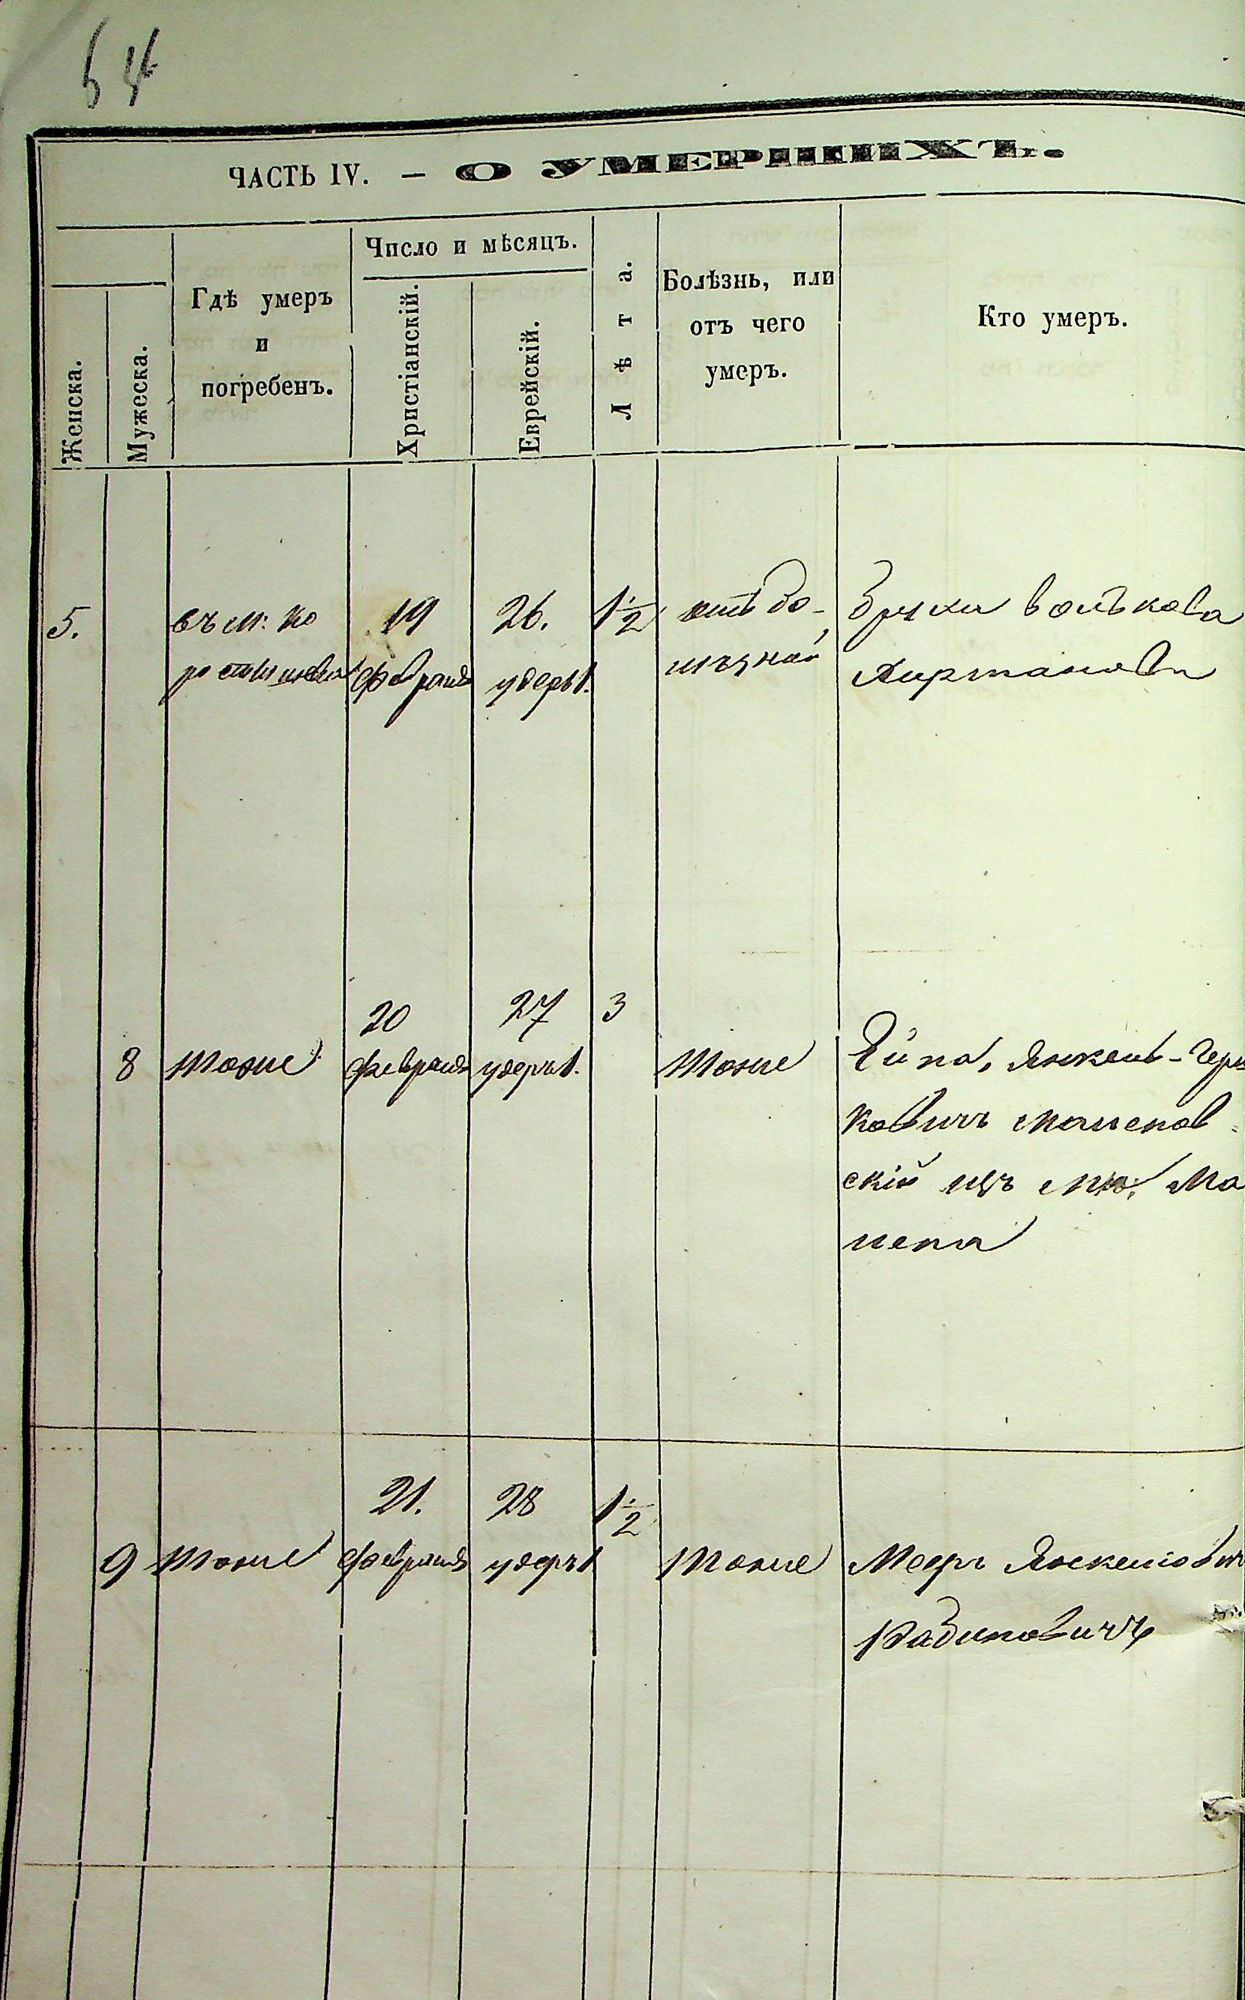 54
ЧАСТЬ IV. — О УМЕРШИХЪ.
Женска.
Мужеска.
Гдѣ умеръ
и
погребенъ.
Число и мѣсяцъ.
Христіанскій.
Еврейскій.
Лѣта.
Болѣзнь, или
отъ чего
умеръ.
Кто умеръ.
5.
въ м: Ко
ростышевѣ
19
февраля
26.
удеръ1.
1 1/2
отъ бо-
Брухи Волькова
8
тоже
20
февраля
27
удеръ1.
3
тоже
Янкель-Герш
ковичъ
скій изъ Ма
9
тоже
21.
февраля
28
удеръ1
1 1/2
тоже
Мееръ Янкелевич
Рабиновичъ